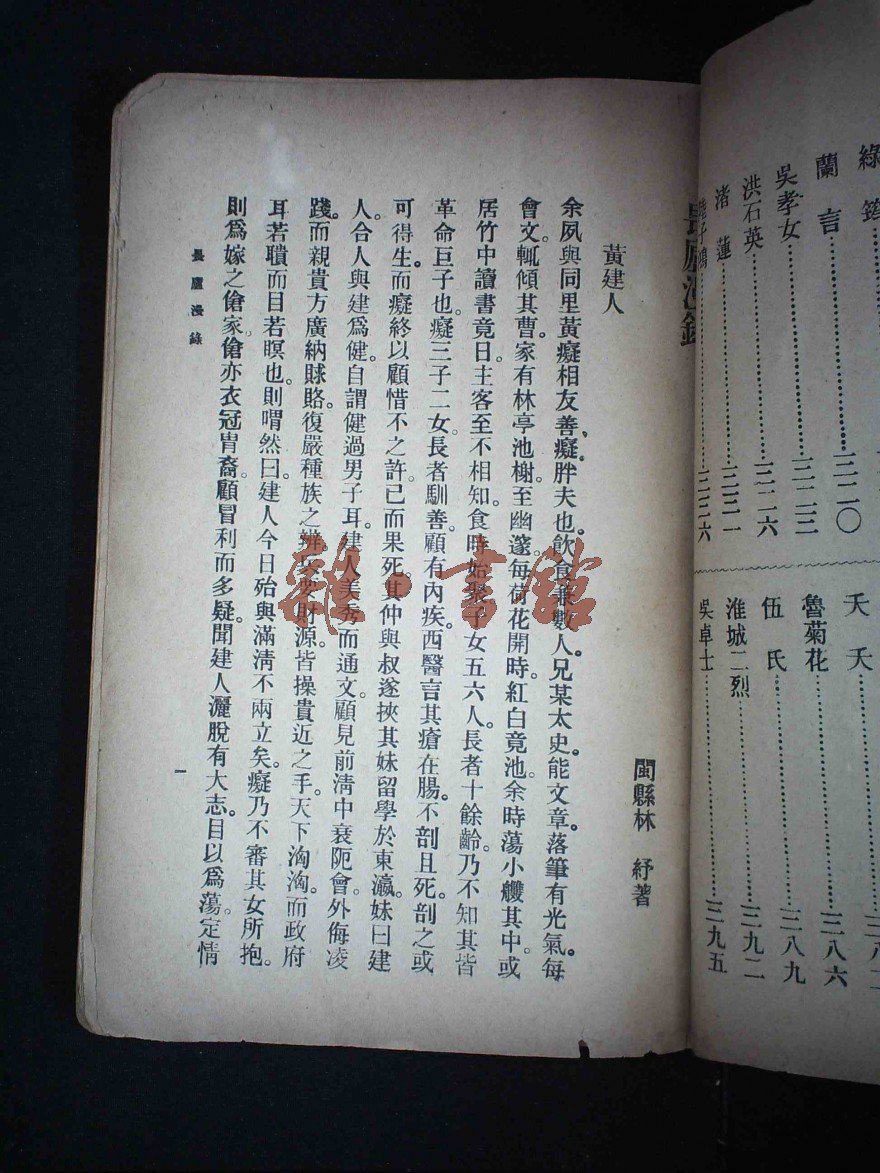 蘭言……三二〇
吳孝女……三二三
洪石英……三二六
渚蓮……三三一
子鴻……三三六
夭夭……
魯菊花……三八六
伍氏……三八九
淮城二烈……三九二
吳卓士……三九五
畏廬漫錄
閩縣林　紓著
黃建人
余夙與同里黃癡相友善。癡胖夫也。飲食兼數人。兄某太史能文章。落筆有光氣。每
會文。輒傾其曹。家有林亭池榭。至幽邃。每荷花開時。紅白竟池。余時蕩小艭其中。或
居竹中讀書竟日。主客至不相知。食時始聚子女五六人。長者十餘齡。乃不知其皆
革命巨子也。癡三子二女。長者馴善。顧有內疾。西醫言其瘡在腸。不剖且死。剖之或
可得生。而癡終以顧惜不之許。已而果死。其仲與叔遂挾其妹留學於東瀛。妹曰建
人。合人與建爲健。自謂健過男子耳。建人美秀而通文。顧見前淸中衰阨會。外侮凌
踐。而親貴方廣納賕賂。復嚴種族之辨。扼要財源皆操貴近之手。天下洶洶。而政府
耳若聵而目若瞑也。則喟然曰。建人今日殆與滿淸不兩立矣。癡乃不審其女所抱。
則爲嫁之傖家。傖亦衣冠胄裔。顧冒利而多疑。聞建人灑脫有大志。目以爲蕩。定情
畏廬漫錄
一
雜·書館